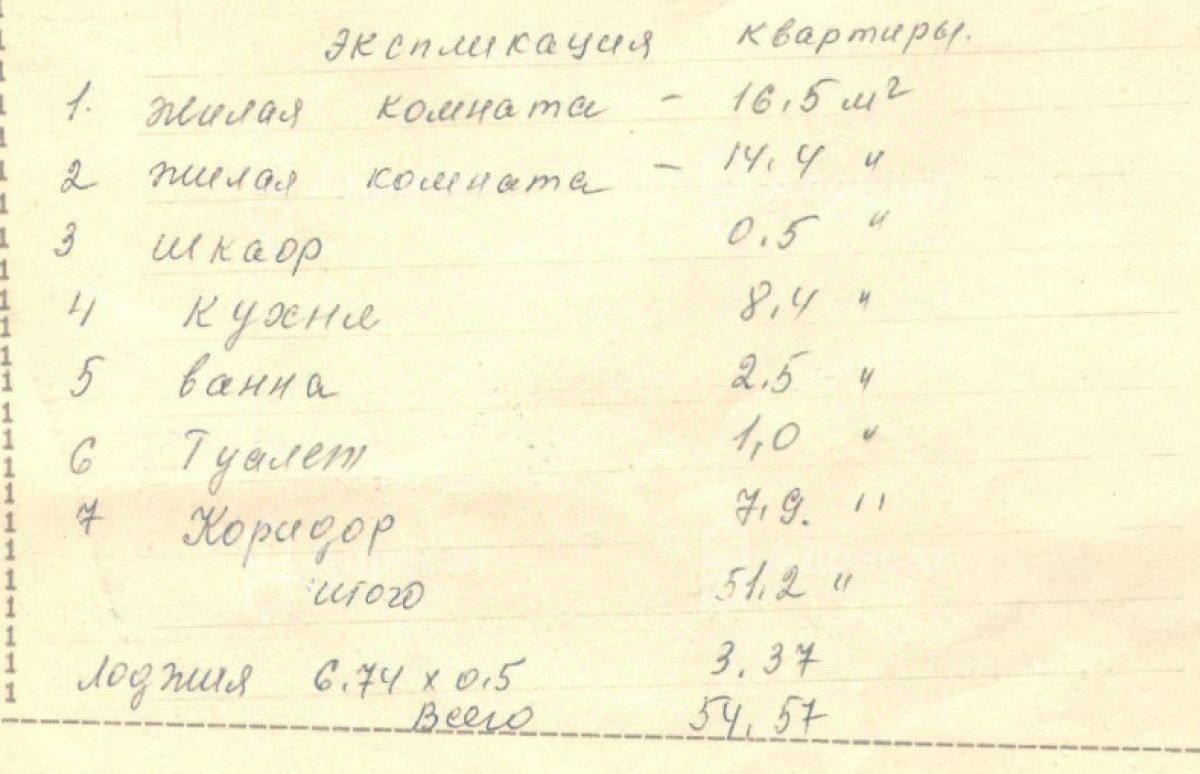 экспликация квартиры.
1. жилая комната - 16.5 м²
2 жилая комната - 14.4 "
3 шкаф 0.5 "
4 кухня 8.4 "
5 ванна 2.5 "
6 Туалет 1,0 "
7 Коридор 7.9. "
итого 51.2 "
лоджия 6.74 x 0.5 3.37
Всего 54.57